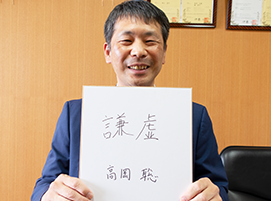 謙虚
高岡 聡